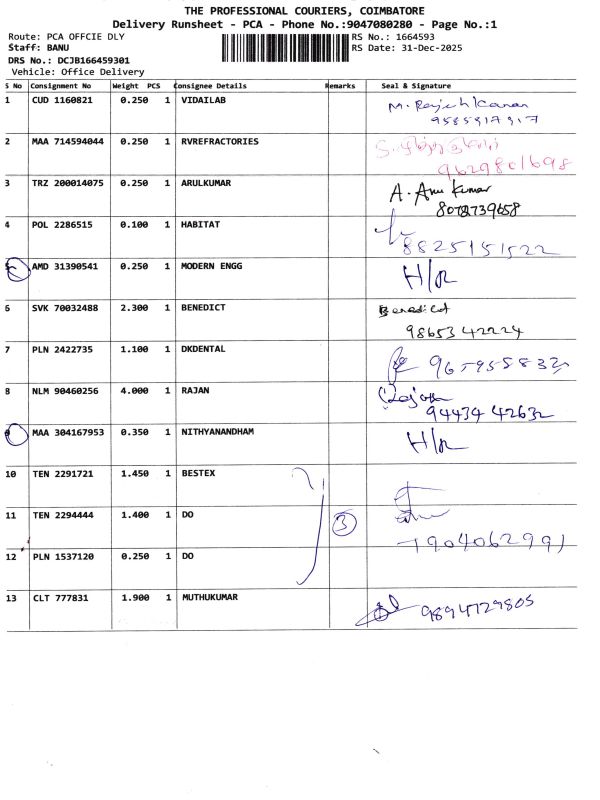 THE PROFESSIONAL COURIERS, COIMBATORE
Delivery Runsheet - PCA - Phone No.:9047080280 - Page No.:1
Route: PCA OFFCIE DLY RS No.: 1664593
Staff: BANU RS Date: 31-Dec-2025
DRS No.: DCJB166459301
Vehicle: Office Delivery
S No Consignment No Weight PCS Consignee Details Remarks Seal & Signature
1 CUD 1160821 0.250 1 VIDAILAB
2 MAA 714594044 0.250 1 RVREFRACTORIES
9629801698
3 TRZ 200014075 0.250 1 ARULKUMAR A. Anu Kumar
8072739658
4 POL 2286515 0.100 1 HABITAT
8825151522
5 AMD 31390541 0.250 1 MODERN ENGG H/R
6 SVK 70032488 2.300 1 BENEDICT Benedict
98653 42224
7 PLN 2422735 1.100 1 DKDENTAL
8 NLM 90460256 4.000 1 RAJAN Rajan
94434 42632
9 MAA 304167953 0.350 1 NITHYANANDHAM H/R
10 TEN 2291721 1.450 1 BESTEX
11 TEN 2294444 1.400 1 DO 3
7904062991
12 PLN 1537120 0.250 1 DO
13 CLT 777831 1.900 1 MUTHUKUMAR 9894729805